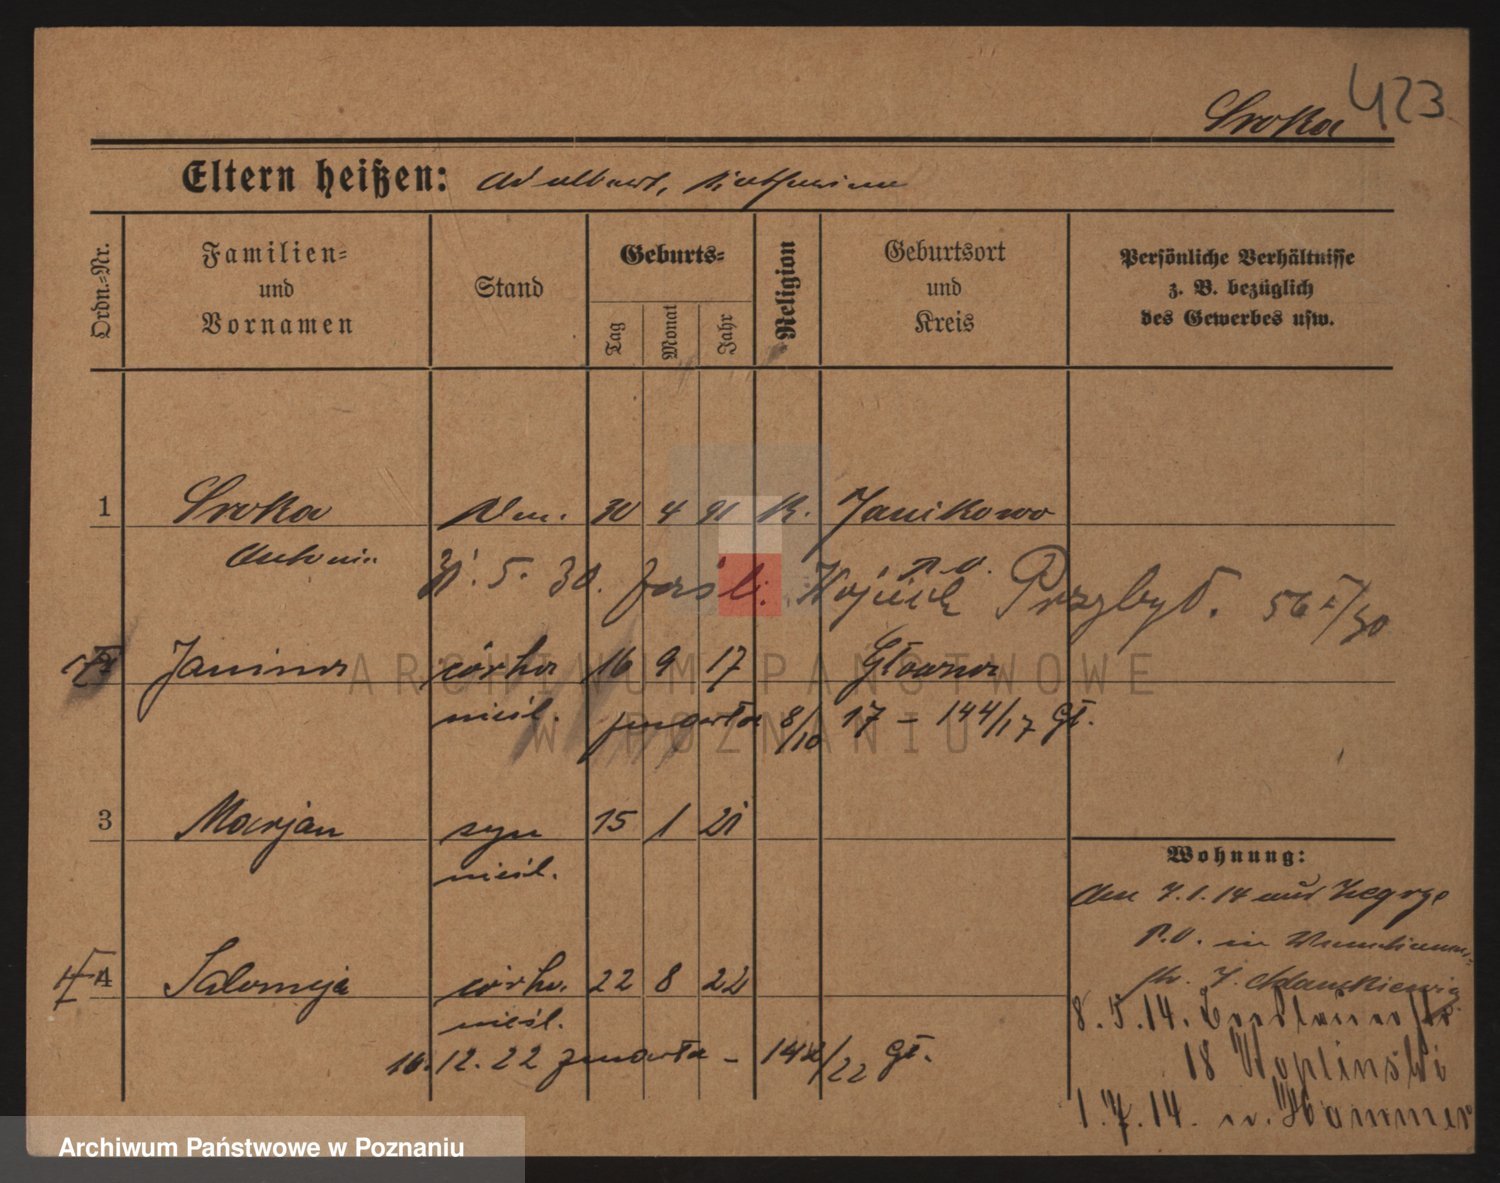 423
Sroka
Eltern heißen: Adalbert, Katharina
Ordn.-Nr.
Familien=
und
Vornamen
Stand
Geburts=
Tag
Monat
Jahr
Religion
Geburtsort
und
Kreis
Persönliche Verhältnisse
z. B. bezüglich
des Gewerbes usw.
1 Sroka 30 4 91 K. Janikowo
P.O.
5. 30. zaśl. Wojciech Przybył. 56 I/30
Janina córka 16 9 17 Główna
nieśl. zmarła 8/10 17 – 144/17 Gł.
3 Marjan syn 15 1 21
nieśl.
4 Salomeja córka 22 8 22
nieśl.
16.12.22 zmarła – 144/22 Gł.
Wohnung:
Am 7.1.14 aus Zegrze
P.O. in
8.5.14.
18 Koplinski
1.7.14. Hammer
ARCHIWUM PAŃSTWOWE
W POZNANIU
Archiwum Państwowe w Poznaniu